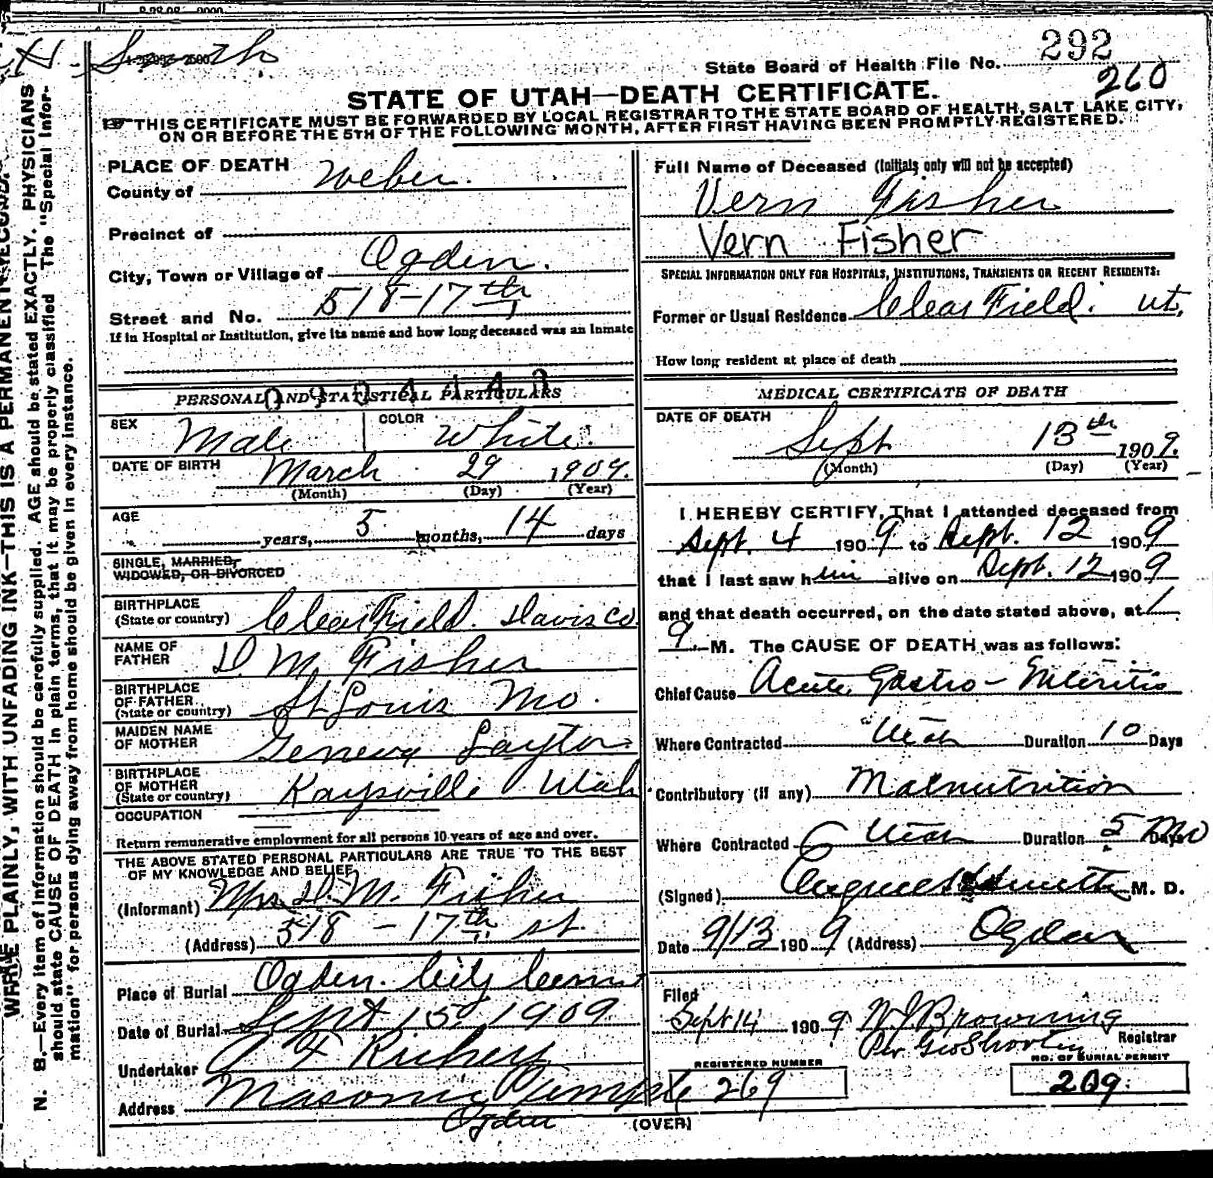 H. Smith
State Board of Health File No. 292
260
STATE OF UTAH—DEATH CERTIFICATE.
THIS CERTIFICATE MUST BE FORWARDED BY LOCAL REGISTRAR TO THE STATE BOARD OF HEALTH, SALT LAKE CITY,
ON OR BEFORE THE 5TH OF THE FOLLOWING MONTH, AFTER FIRST HAVING BEEN PROMPTLY REGISTERED.
WRITE PLAINLY, WITH UNFADING INK—THIS IS A PERMANENT RECORD.
N. B.—Every item of information should be carefully supplied. AGE should be stated EXACTLY. PHYSICIANS
should state CAUSE OF DEATH in plain terms, that it may be properly classified. The "Special Infor-
mation" for persons dying away from home should be given in every instance.
PLACE OF DEATH
County of Weber.
Precinct of
City, Town or Village of Ogden.
Street and No. 518-17th
If in Hospital or Institution, give its name and how long deceased was an Inmate
PERSONAL AND STATISTICAL PARTICULARS
SEX Male COLOR White.
DATE OF BIRTH March 29 1909.
(Month) (Day) (Year)
AGE years, 5 months, 14 days
SINGLE, MARRIED,
WIDOWED, OR DIVORCED
BIRTHPLACE
(State or country) Clearfield. Davis Co.
NAME OF
FATHER D. M. Fisher
BIRTHPLACE
OF FATHER
(State or country) St Louis Mo.
MAIDEN NAME
OF MOTHER Geneva Layton
BIRTHPLACE
OF MOTHER
(State or country) Kaysville Utah
OCCUPATION
Return remunerative employment for all persons 10 years of age and over.
THE ABOVE STATED PERSONAL PARTICULARS ARE TRUE TO THE BEST
OF MY KNOWLEDGE AND BELIEF
(Informant) Mrs. D. M. Fisher
(Address) 518 - 17th st
Place of Burial Ogden City
Date of Burial Sept 15 1909
Undertaker
Address Masonic Temple
Ogden
Full Name of Deceased (Initials only will not be accepted)
Vern Fisher
Vern Fisher
SPECIAL INFORMATION ONLY FOR HOSPITALS, INSTITUTIONS, TRANSIENTS OR RECENT RESIDENTS:
Former or Usual Residence Clear Field. Ut.
How long resident at place of death
MEDICAL CERTIFICATE OF DEATH
DATE OF DEATH Sept 13th 1909.
(Month) (Day) (Year)
I HEREBY CERTIFY, That I attended deceased from
Sept. 4 1909 to Sept. 12 1909
that I last saw him alive on Sept. 12 1909
and that death occurred, on the date stated above, at 1
M. The CAUSE OF DEATH was as follows:
Chief Cause Acute Gastro-Enteritis
Where Contracted Utah Duration 10 Days
Contributory (if any) Malnutrition
Where Contracted Utah Duration 5 Mo Days
(Signed) M. D.
Date 9/13 1909 (Address) Ogden
Filed
Sept 14 1909 Browning
Per Geo Shorten Registrar
REGISTERED NUMBER 269
NO. OF BURIAL PERMIT 269.
(OVER)